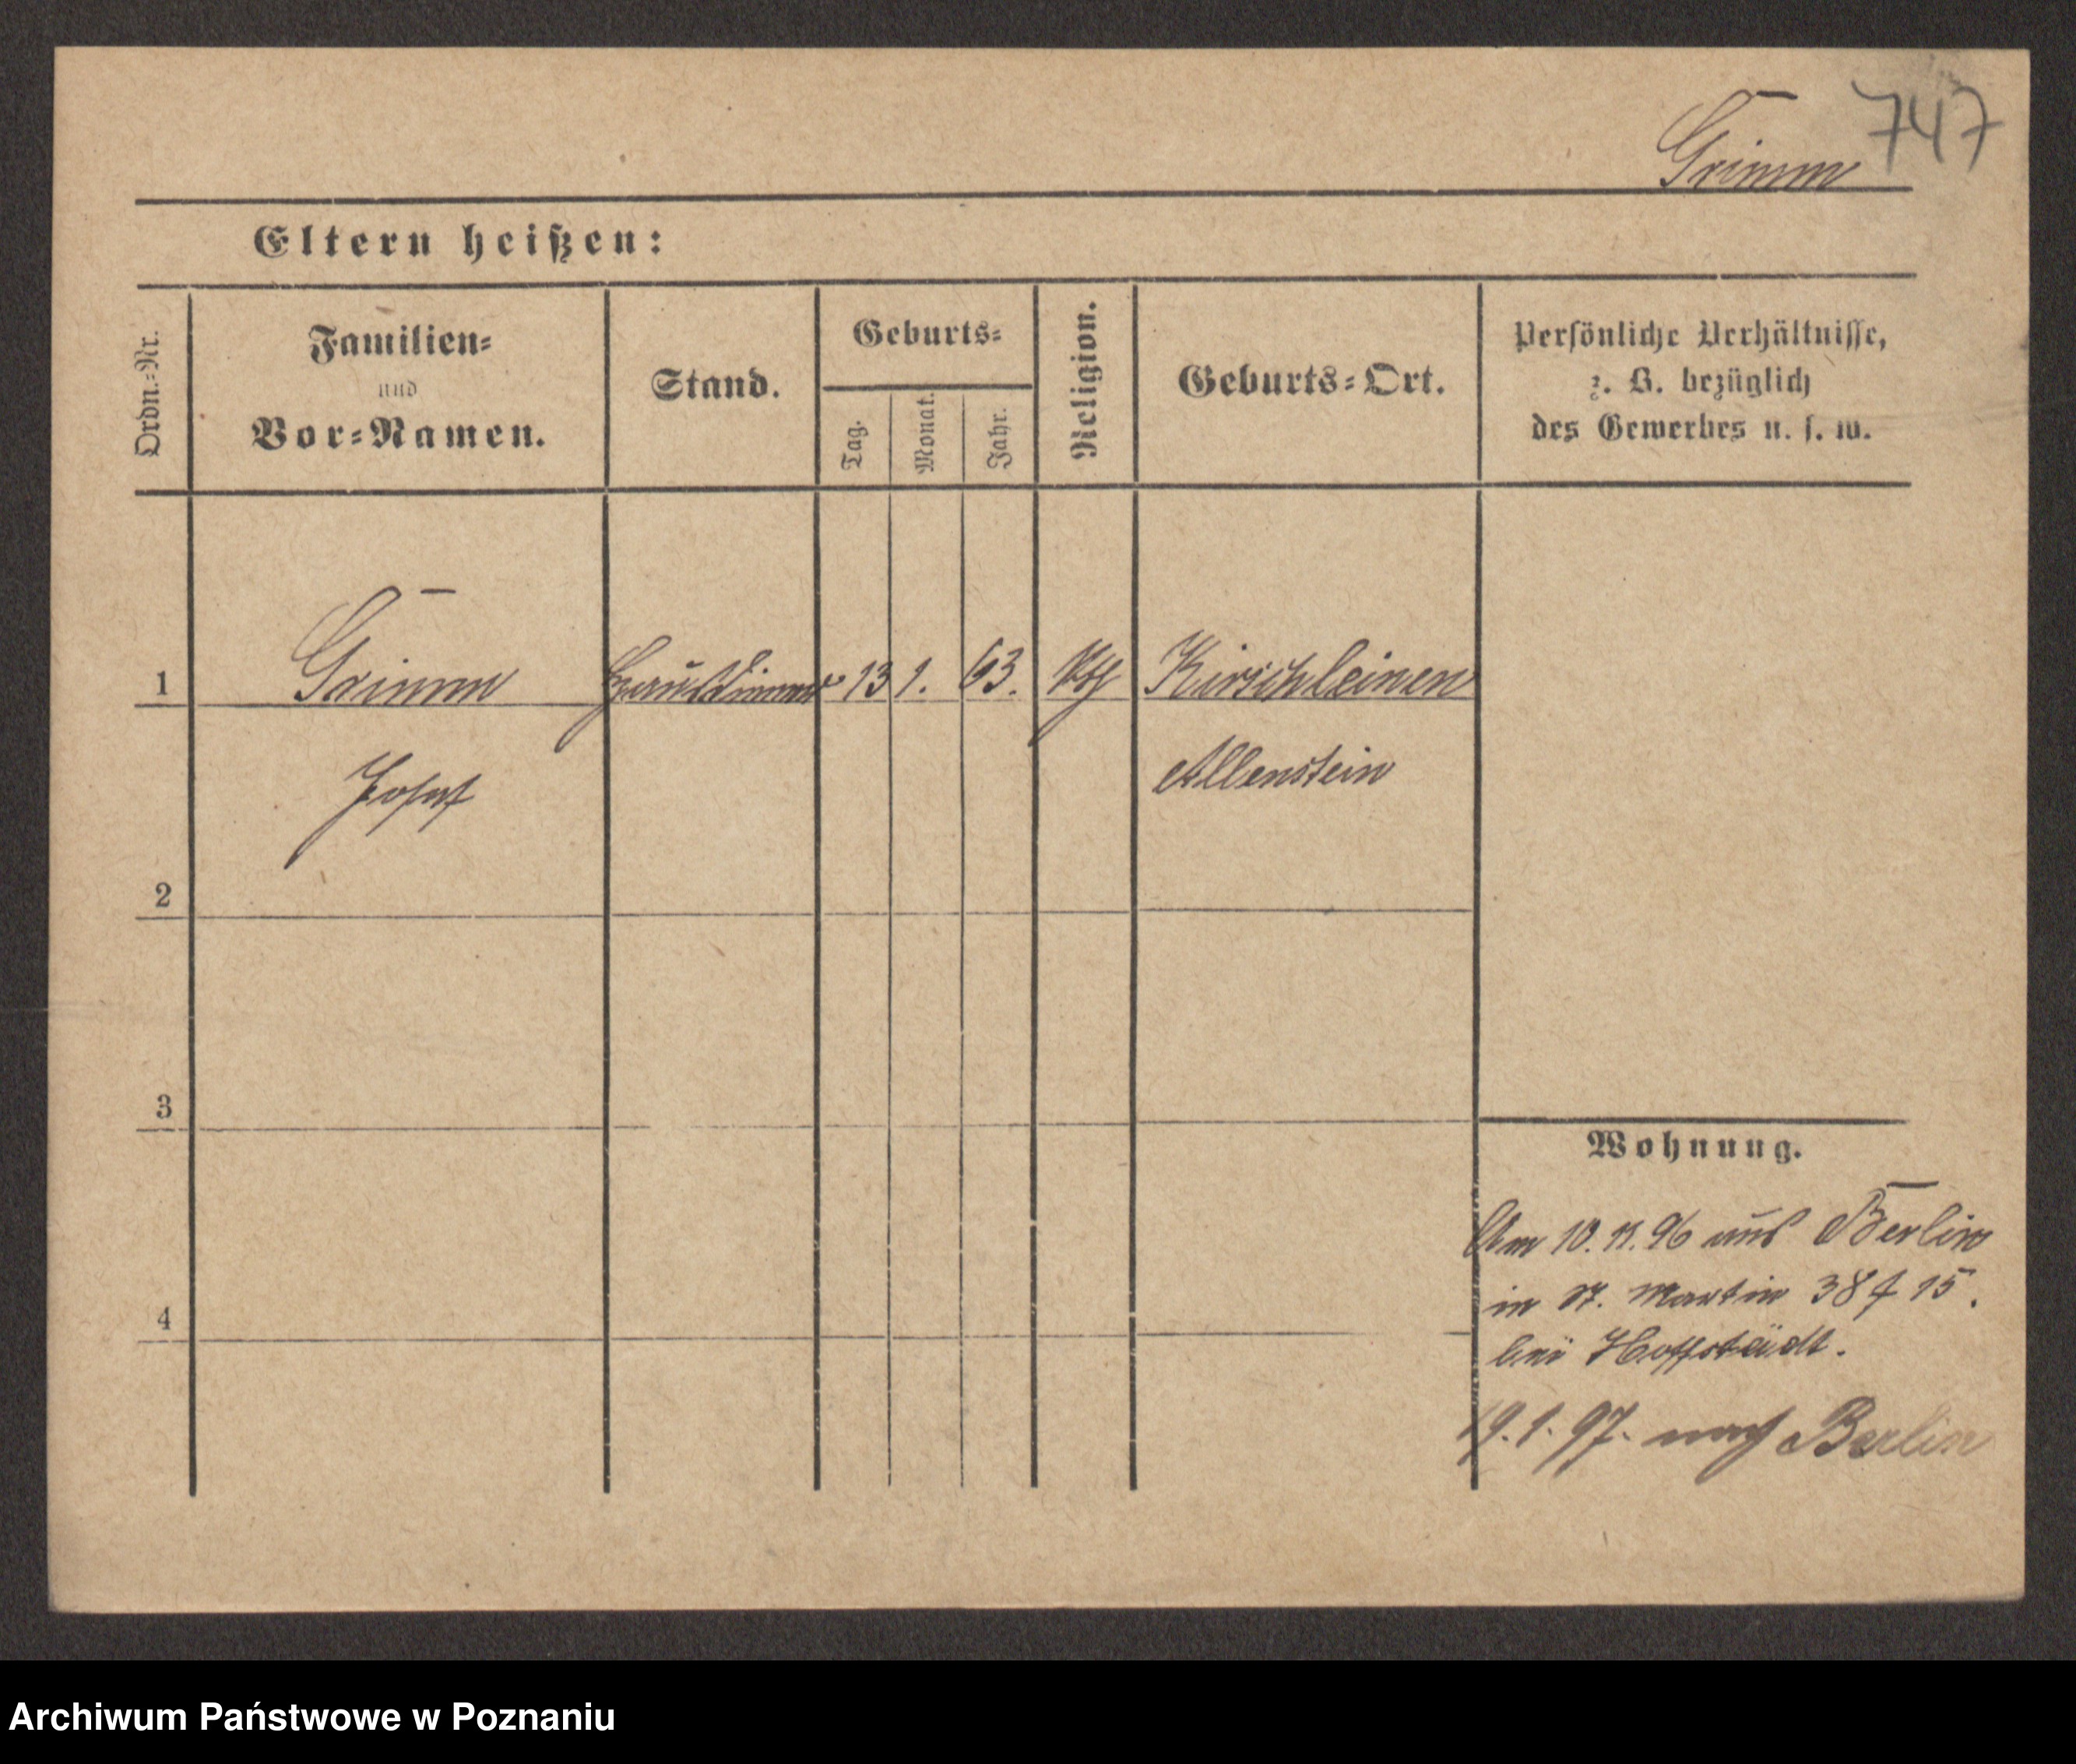 747
Grimm
Eltern heißen:
Ordn.-Nr.
Familien-
und
Vor-Namen.
Stand.
Geburts-
Tag.
Monat.
Jahr.
Religion.
Geburts-Ort.
Persönliche Verhältnisse,
z. B. bezüglich
des Gewerbes u. s. w.
1 Grimm Hausdiener 13 1. 63. kth Kirschleinen
Josef Allenstein
2
3
4
Wohnung.
Am 10. 11. 96 aus Berlin
in St. Martin 38 f 15.
bei Hoffstädt.
19. 1. 97. nach Berlin
Archiwum Państwowe w Poznaniu